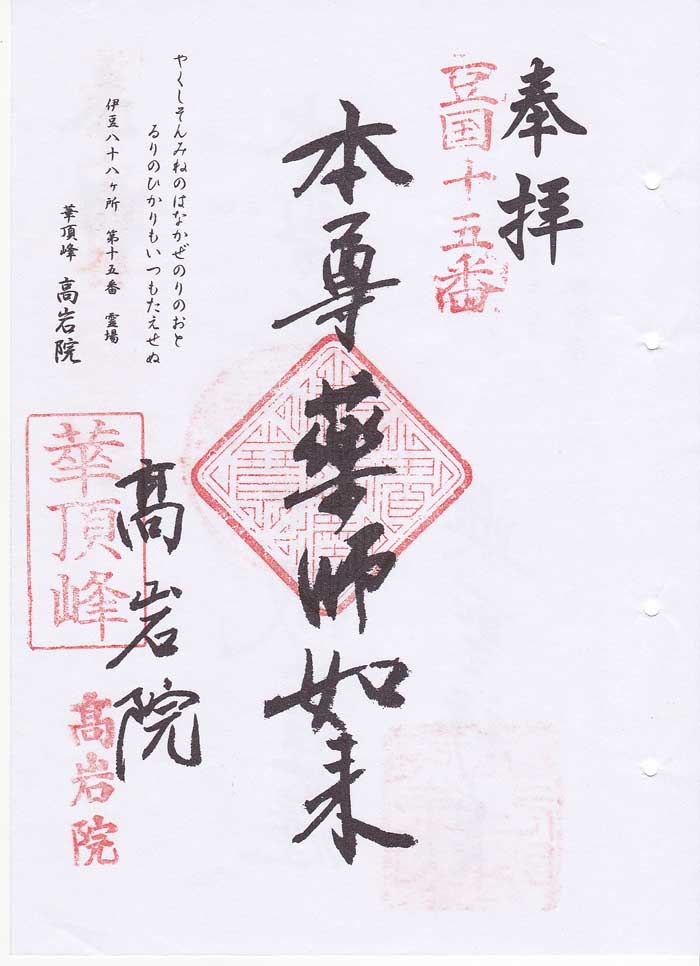 奉拝
豆国十五番
本尊薬師如来
やくしそんみねのはなかぜのりのおと
るりのひかりもいつもたえせぬ
伊豆八十八ヶ所 第十五番 霊場
華頂峰 高岩院
高岩院
華頂峰
高岩院